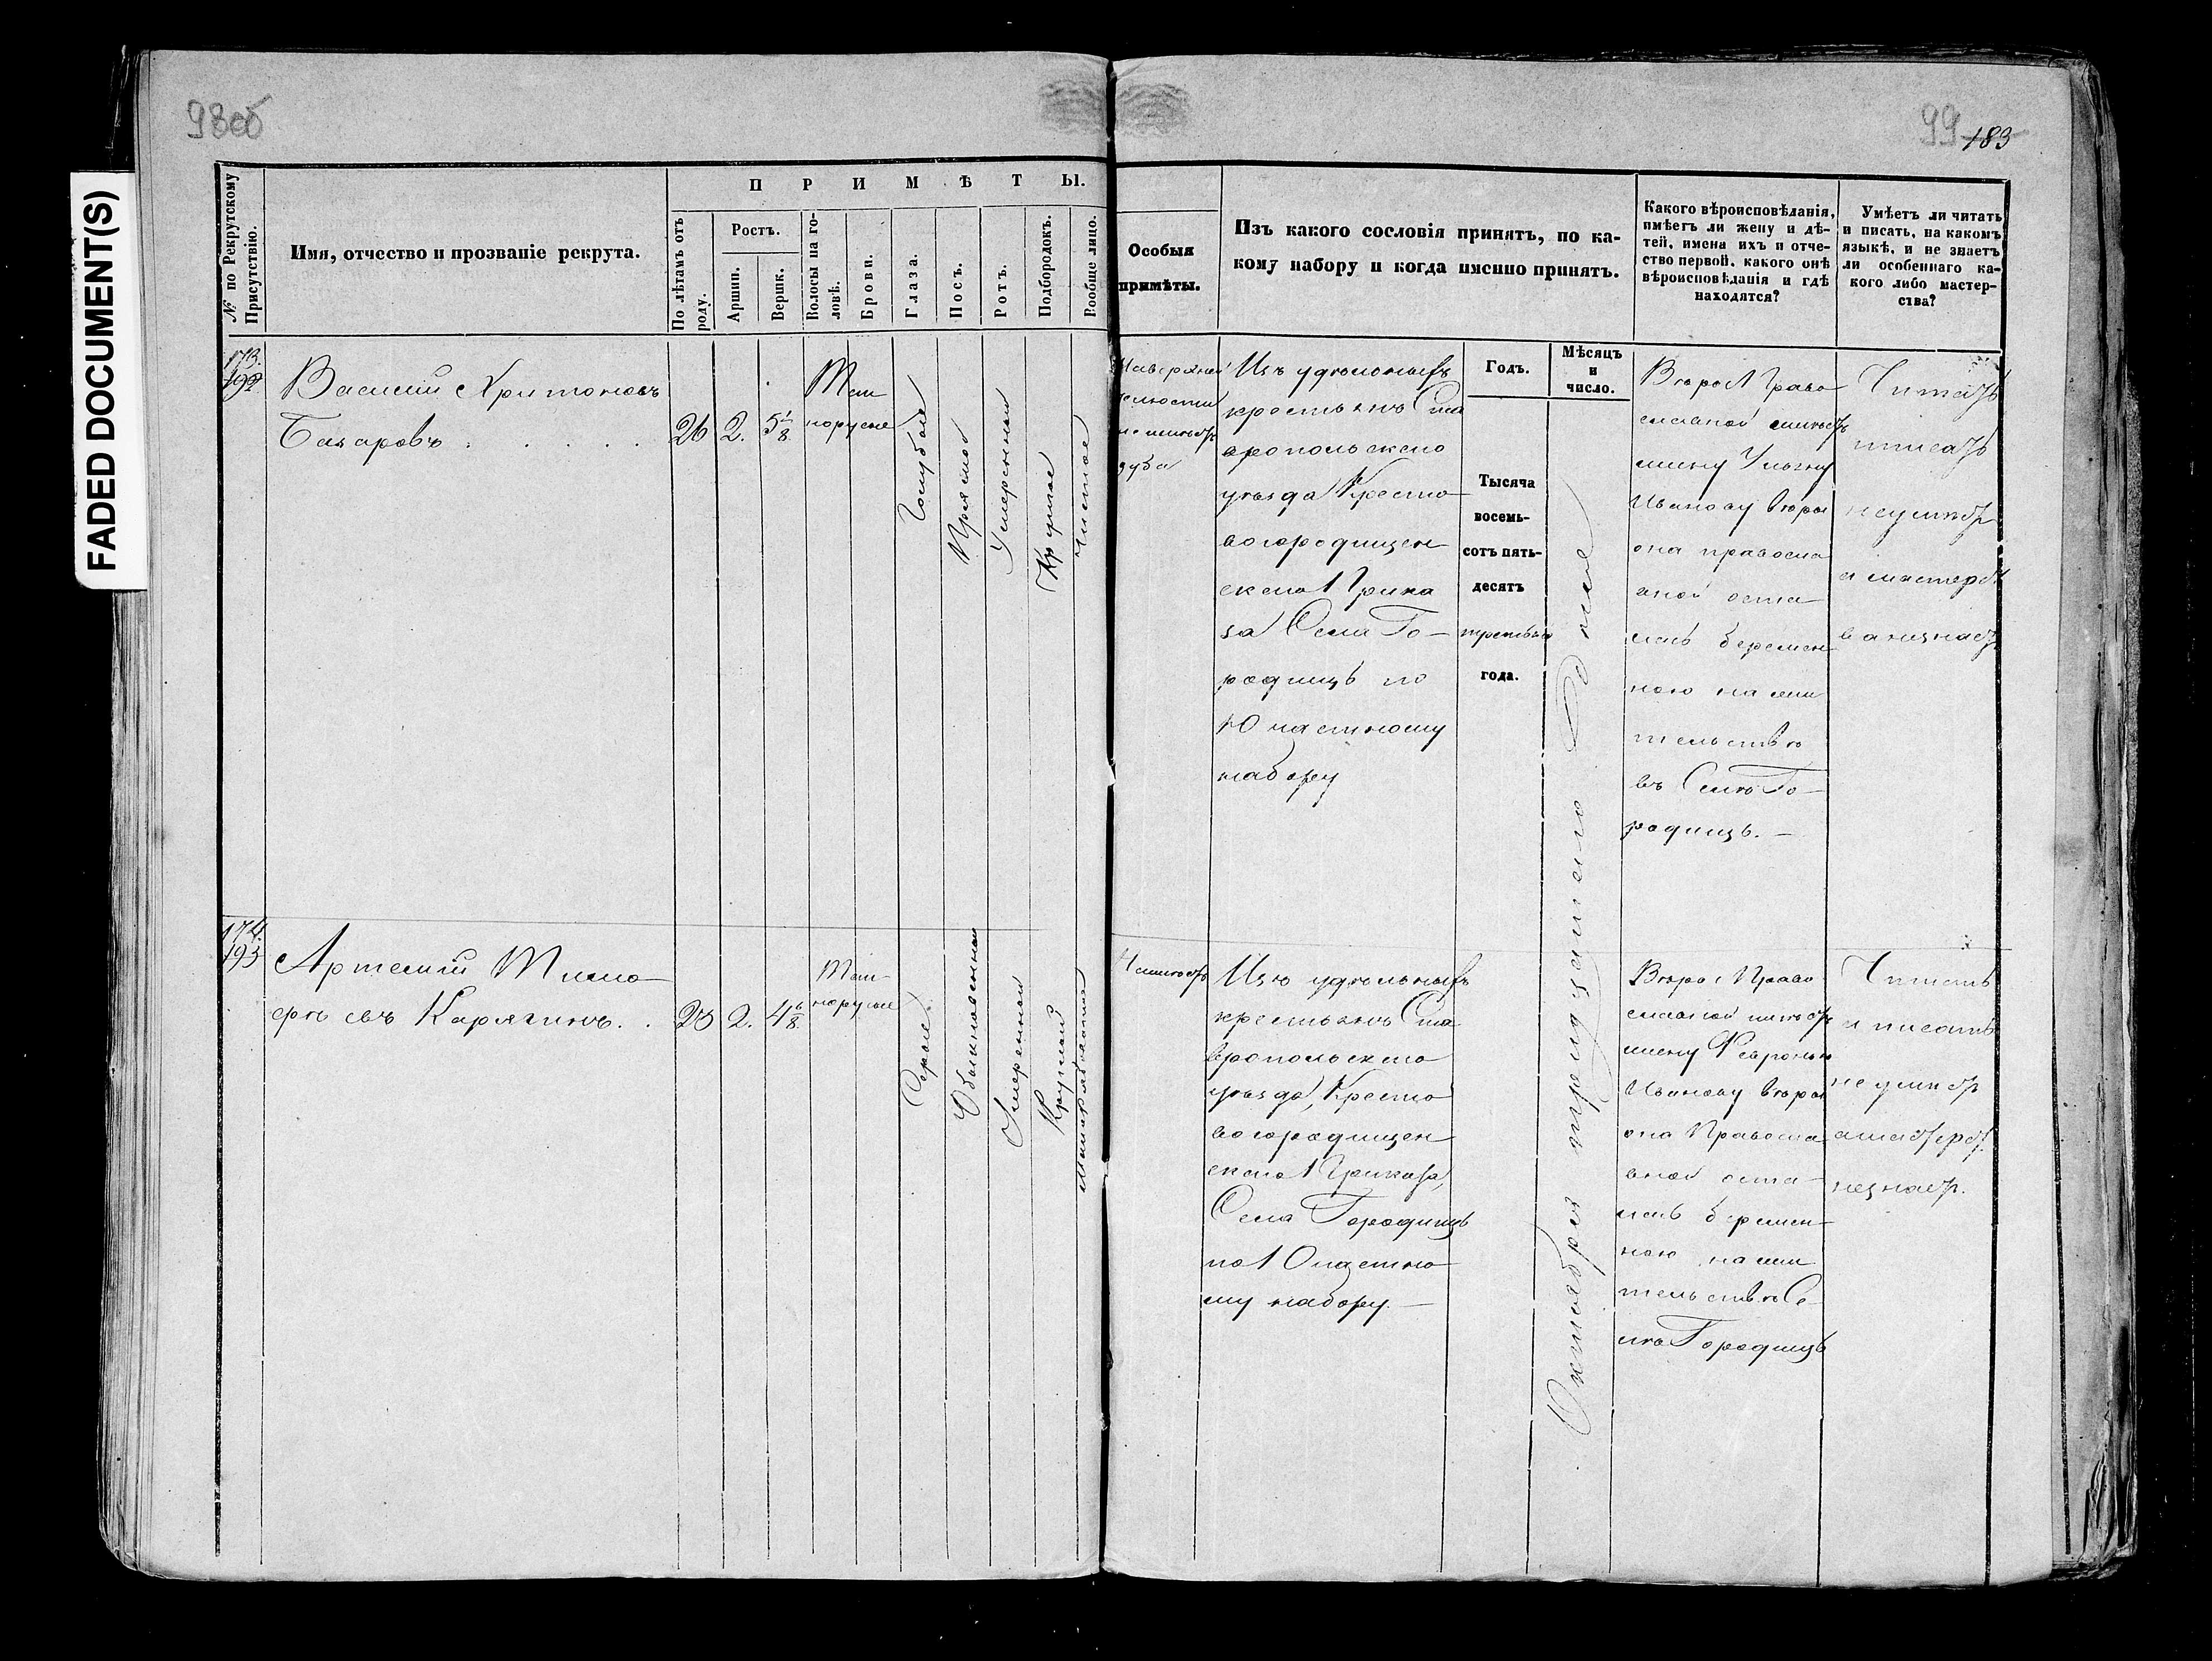 98об
99
183
FADED DOCUMENT(S)
№ по Рекрутскому Присутствію.
Имя, отчество и прозваніе рекрута.
ПРИМѢТЫ.
По лѣтамъ отъ роду.
Ростъ.
Аршин.
Вершк.
Волосы на головѣ.
Брови.
Глаза.
Носъ.
Ротъ.
Подбородокъ.
Вообще лицо.
Особыя
примѣты.
Изъ какого сословія принятъ, по ка-
кому набору и когда имснно принятъ.
Какого вѣроисповѣданія,
имѣетъ ли жену и дѣ-
тей, имена ихъ и отче-
ство первой, какого онѣ
вѣроисповѣданія и гдѣ
находятся?
Умѣетъ ли читать
и писать, на какомъ
языкѣ, и не знаетъ
ли особеннаго ка-
кого либо мастер-
ства?
173.
192
Василий Харитоновъ
26
2.
5 1/8
Тем
норусые
Голубые
Прямой
Умеренной
Круглой
Чистое
челюсти
зуба
Изъ удѣльныхъ
крестьянъ Ста
врополскаго
уѣзда Кресто
вогородищен
скаго Прика
за Села Го-
родищъ по
10 частному
набору
Годъ.
Тысяча
восемь-
сотъ пять-
десятъ
третьяго
года.
Мѣсяцъ
и
число.
Октября тридцатаго дня
Вѣры Право
славной имѣетъ
жену Ульяну
Иванову вѣры
она правосла
вной оста
лась беремен
ною на жи
тельствѣ
въ Селѣ Го-
родищъ.-
Читать
писать
неумѣетъ
и мастерст
ва незнаетъ
174.
193
Артемий Тимо
фѣевъ Карягинъ.
2.
4 6/8
Тем-
норусые
Серые
Обыкновенной
Умеренной
Круглый
Неимѣетъ
Изъ удѣльныхъ
крестьянъ Ста
врополскаго
уѣзда, Кресто
вогородищен
скаго Приказа,
Села Городищъ
по 10 частно
му набору.-
Вѣры Право
славной имѣетъ
жену Февронью
Иванову вѣры
она Правосла
вной оста-
лась беремен-
ною на жи
тельствѣ Се-
лѣ Городищъ
Читать
и писать
неумѣетъ
а мастерст.
незнаетъ.